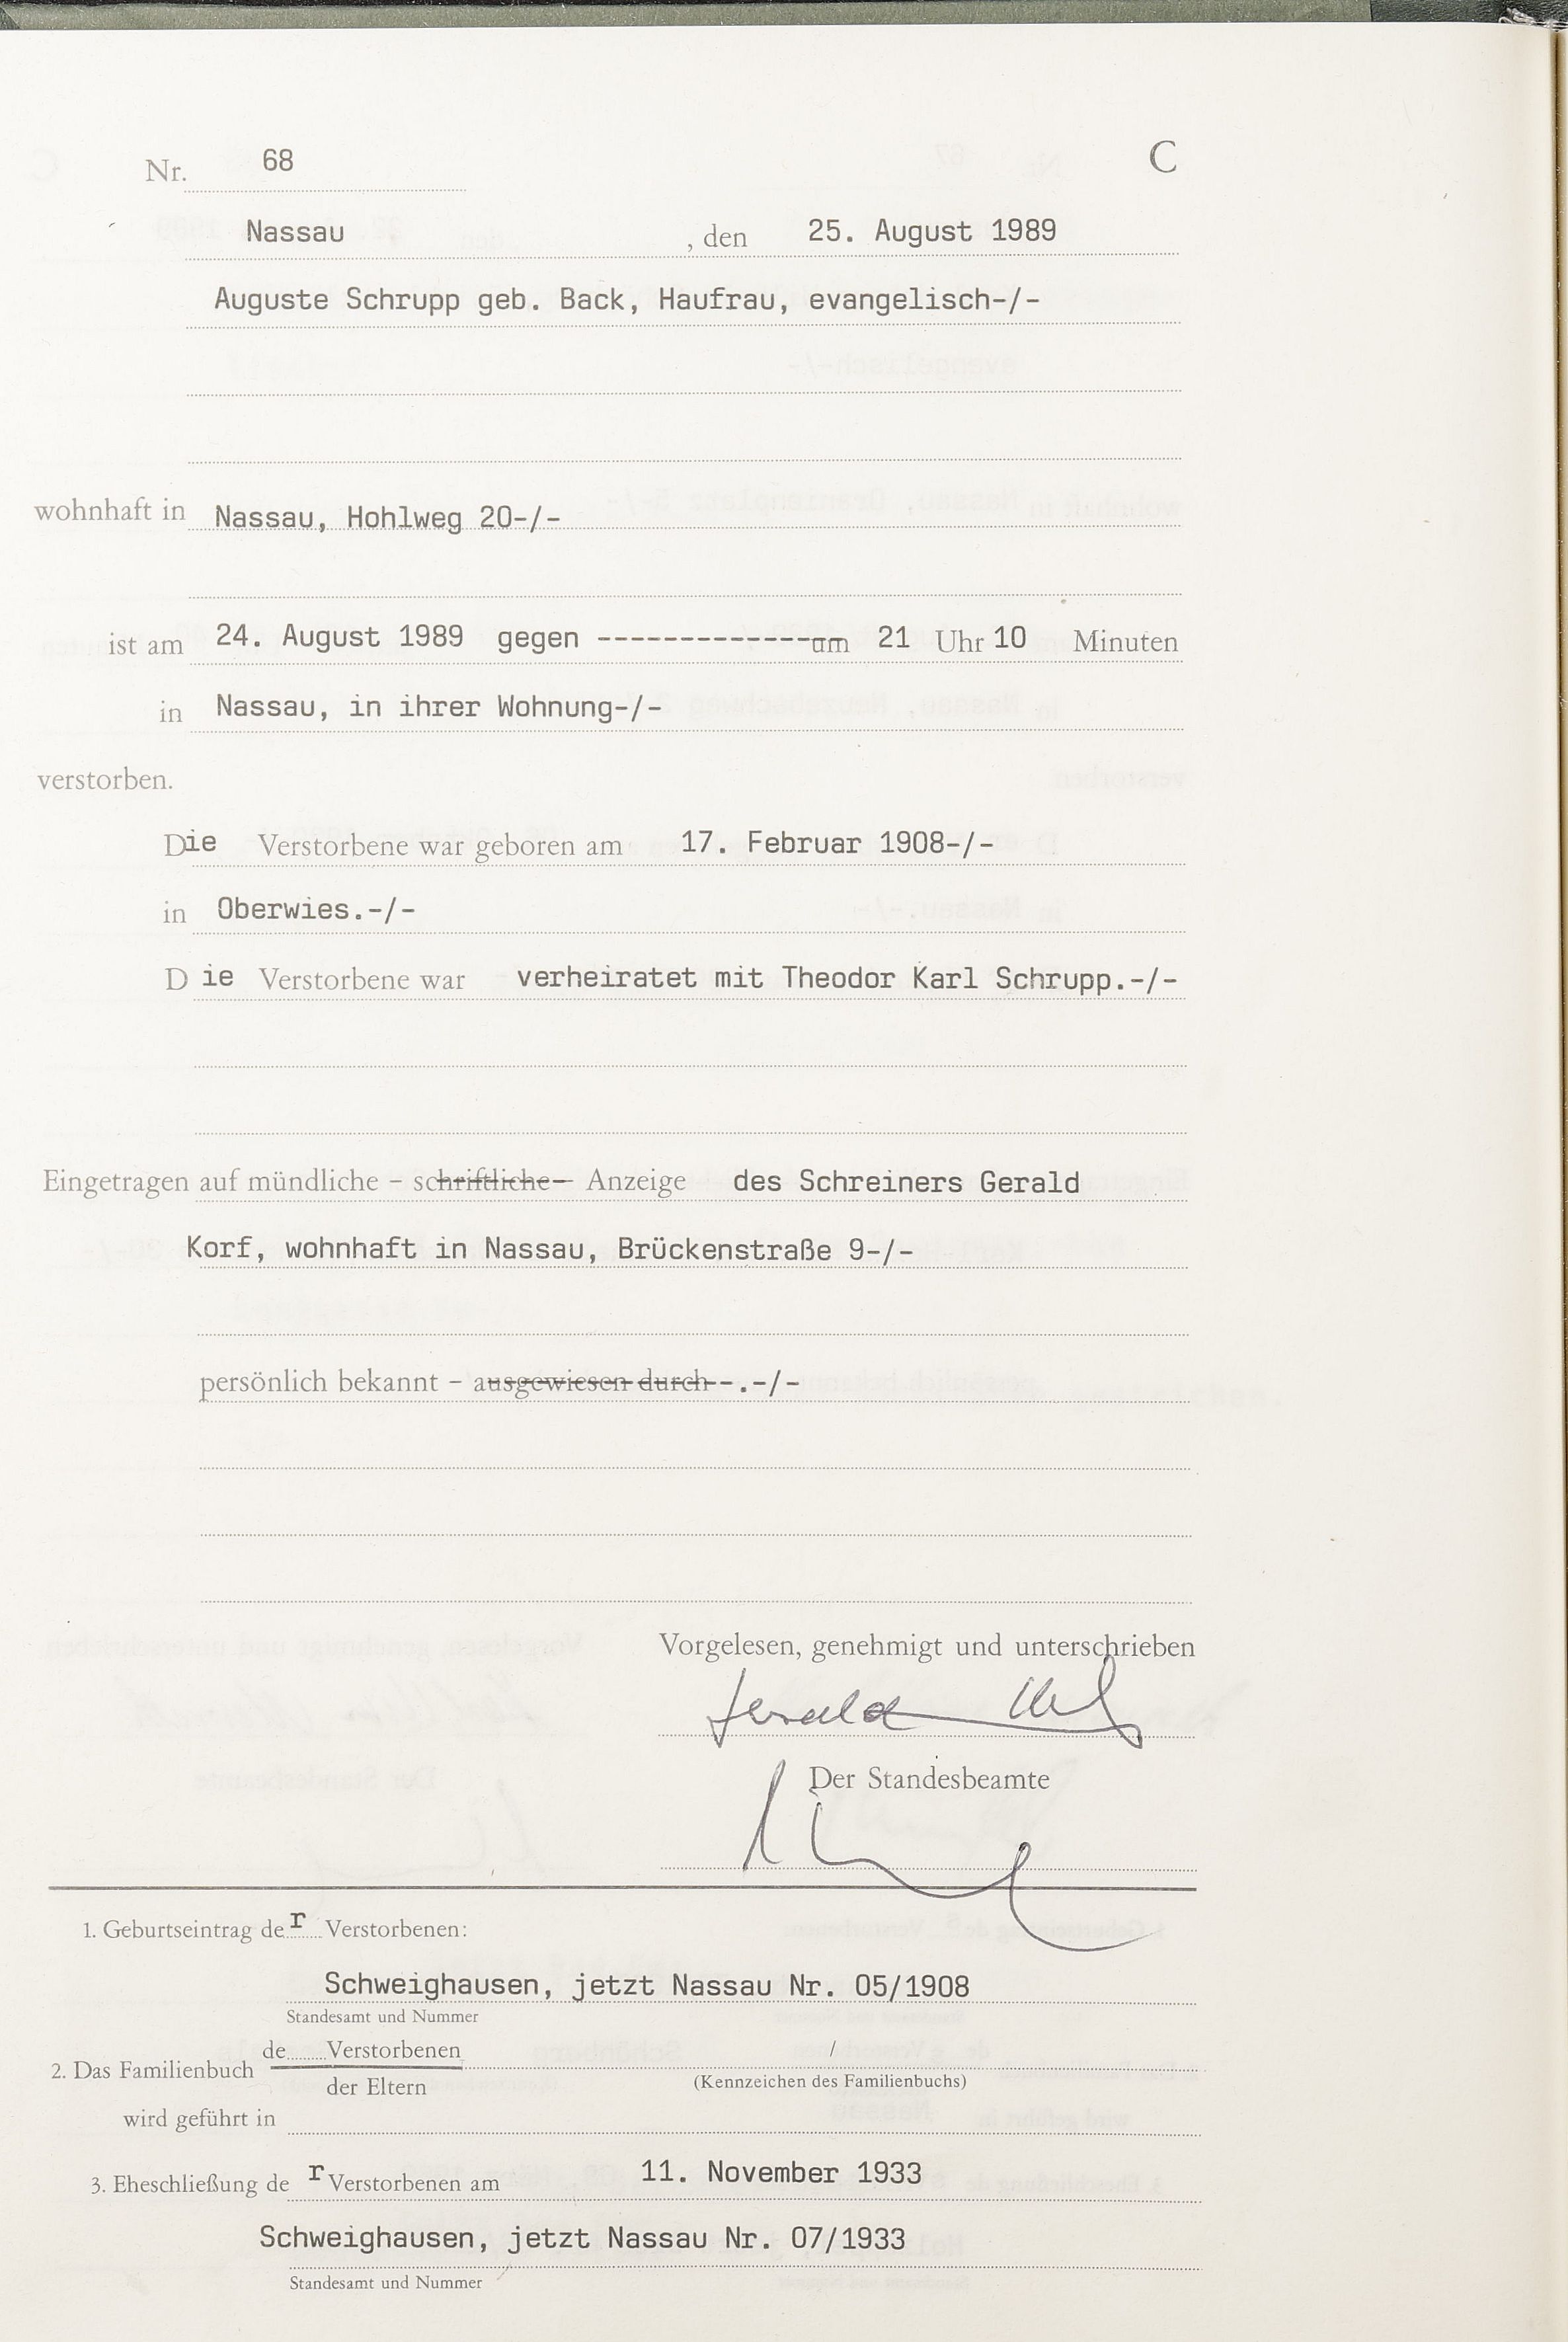 Nr. 68 C
Nassau , den 25. August 1989
Auguste Schrupp geb. Back, Haufrau, evangelisch-/-
wohnhaft in Nassau, Hohlweg 20-/-
ist am 24. August 1989 gegen --------------- um 21 Uhr 10 Minuten
in Nassau, in ihrer Wohnung-/-
verstorben.
Die Verstorbene war geboren am 17. Februar 1908-/-
in Oberwies.-/-
Die Verstorbene war verheiratet mit Theodor Karl Schrupp.-/-
Eingetragen auf mündliche - schriftliche- Anzeige des Schreiners Gerald
Korf, wohnhaft in Nassau, Brückenstraße 9-/-
persönlich bekannt - ausgewiesen durch--.-/-
Vorgelesen, genehmigt und unterschrieben
Gerald
Der Standesbeamte
1. Geburtseintrag der Verstorbenen:
Schweighausen, jetzt Nassau Nr. 05/1908
Standesamt und Nummer
de Verstorbenen /
2. Das Familienbuch
der Eltern (Kennzeichen des Familienbuchs)
wird geführt in
3. Eheschließung der Verstorbenen am 11. November 1933
Schweighausen, jetzt Nassau Nr. 07/1933
Standesamt und Nummer